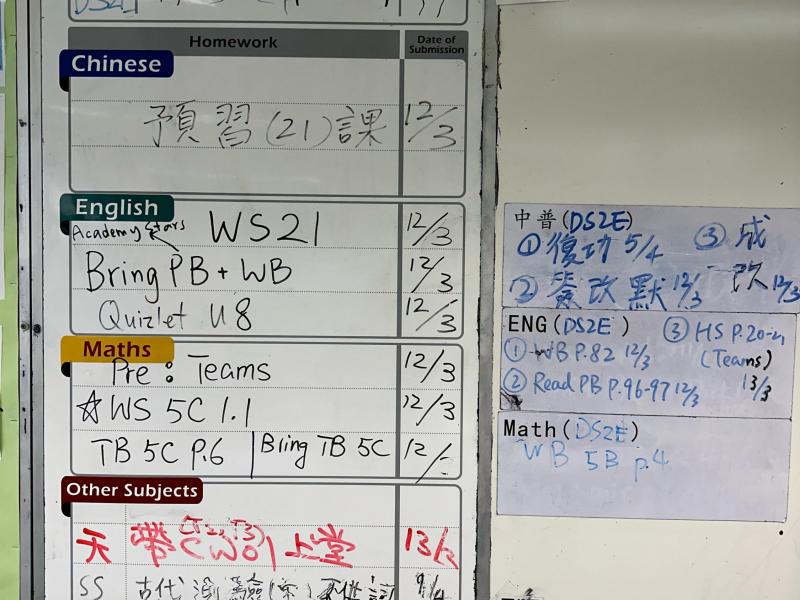 Homework Date of Submission
Chinese
預習(21)課 12/3
English
Academy Stars WS21 12/3
Bring PB + WB 12/3
Quizlet U8 12/3
Maths
Pre : Teams 12/3
☆WS 5C 1.1 12/3
TB 5C P.6 | Bring TB 5C 12/
Other Subjects
天 帶 CW01 上堂 13/3
SS 古代 測驗
中普(DS2E)
① 復功 5/4 ③ 成
② 簽改默 12/3 改 12/3
ENG(DS2E) ③ HS P.20-21
① WB P.82 12/3 (Teams)
② Read PB P.96-97 12/3 13/3
Math(DS2E)
WB 5B p.4